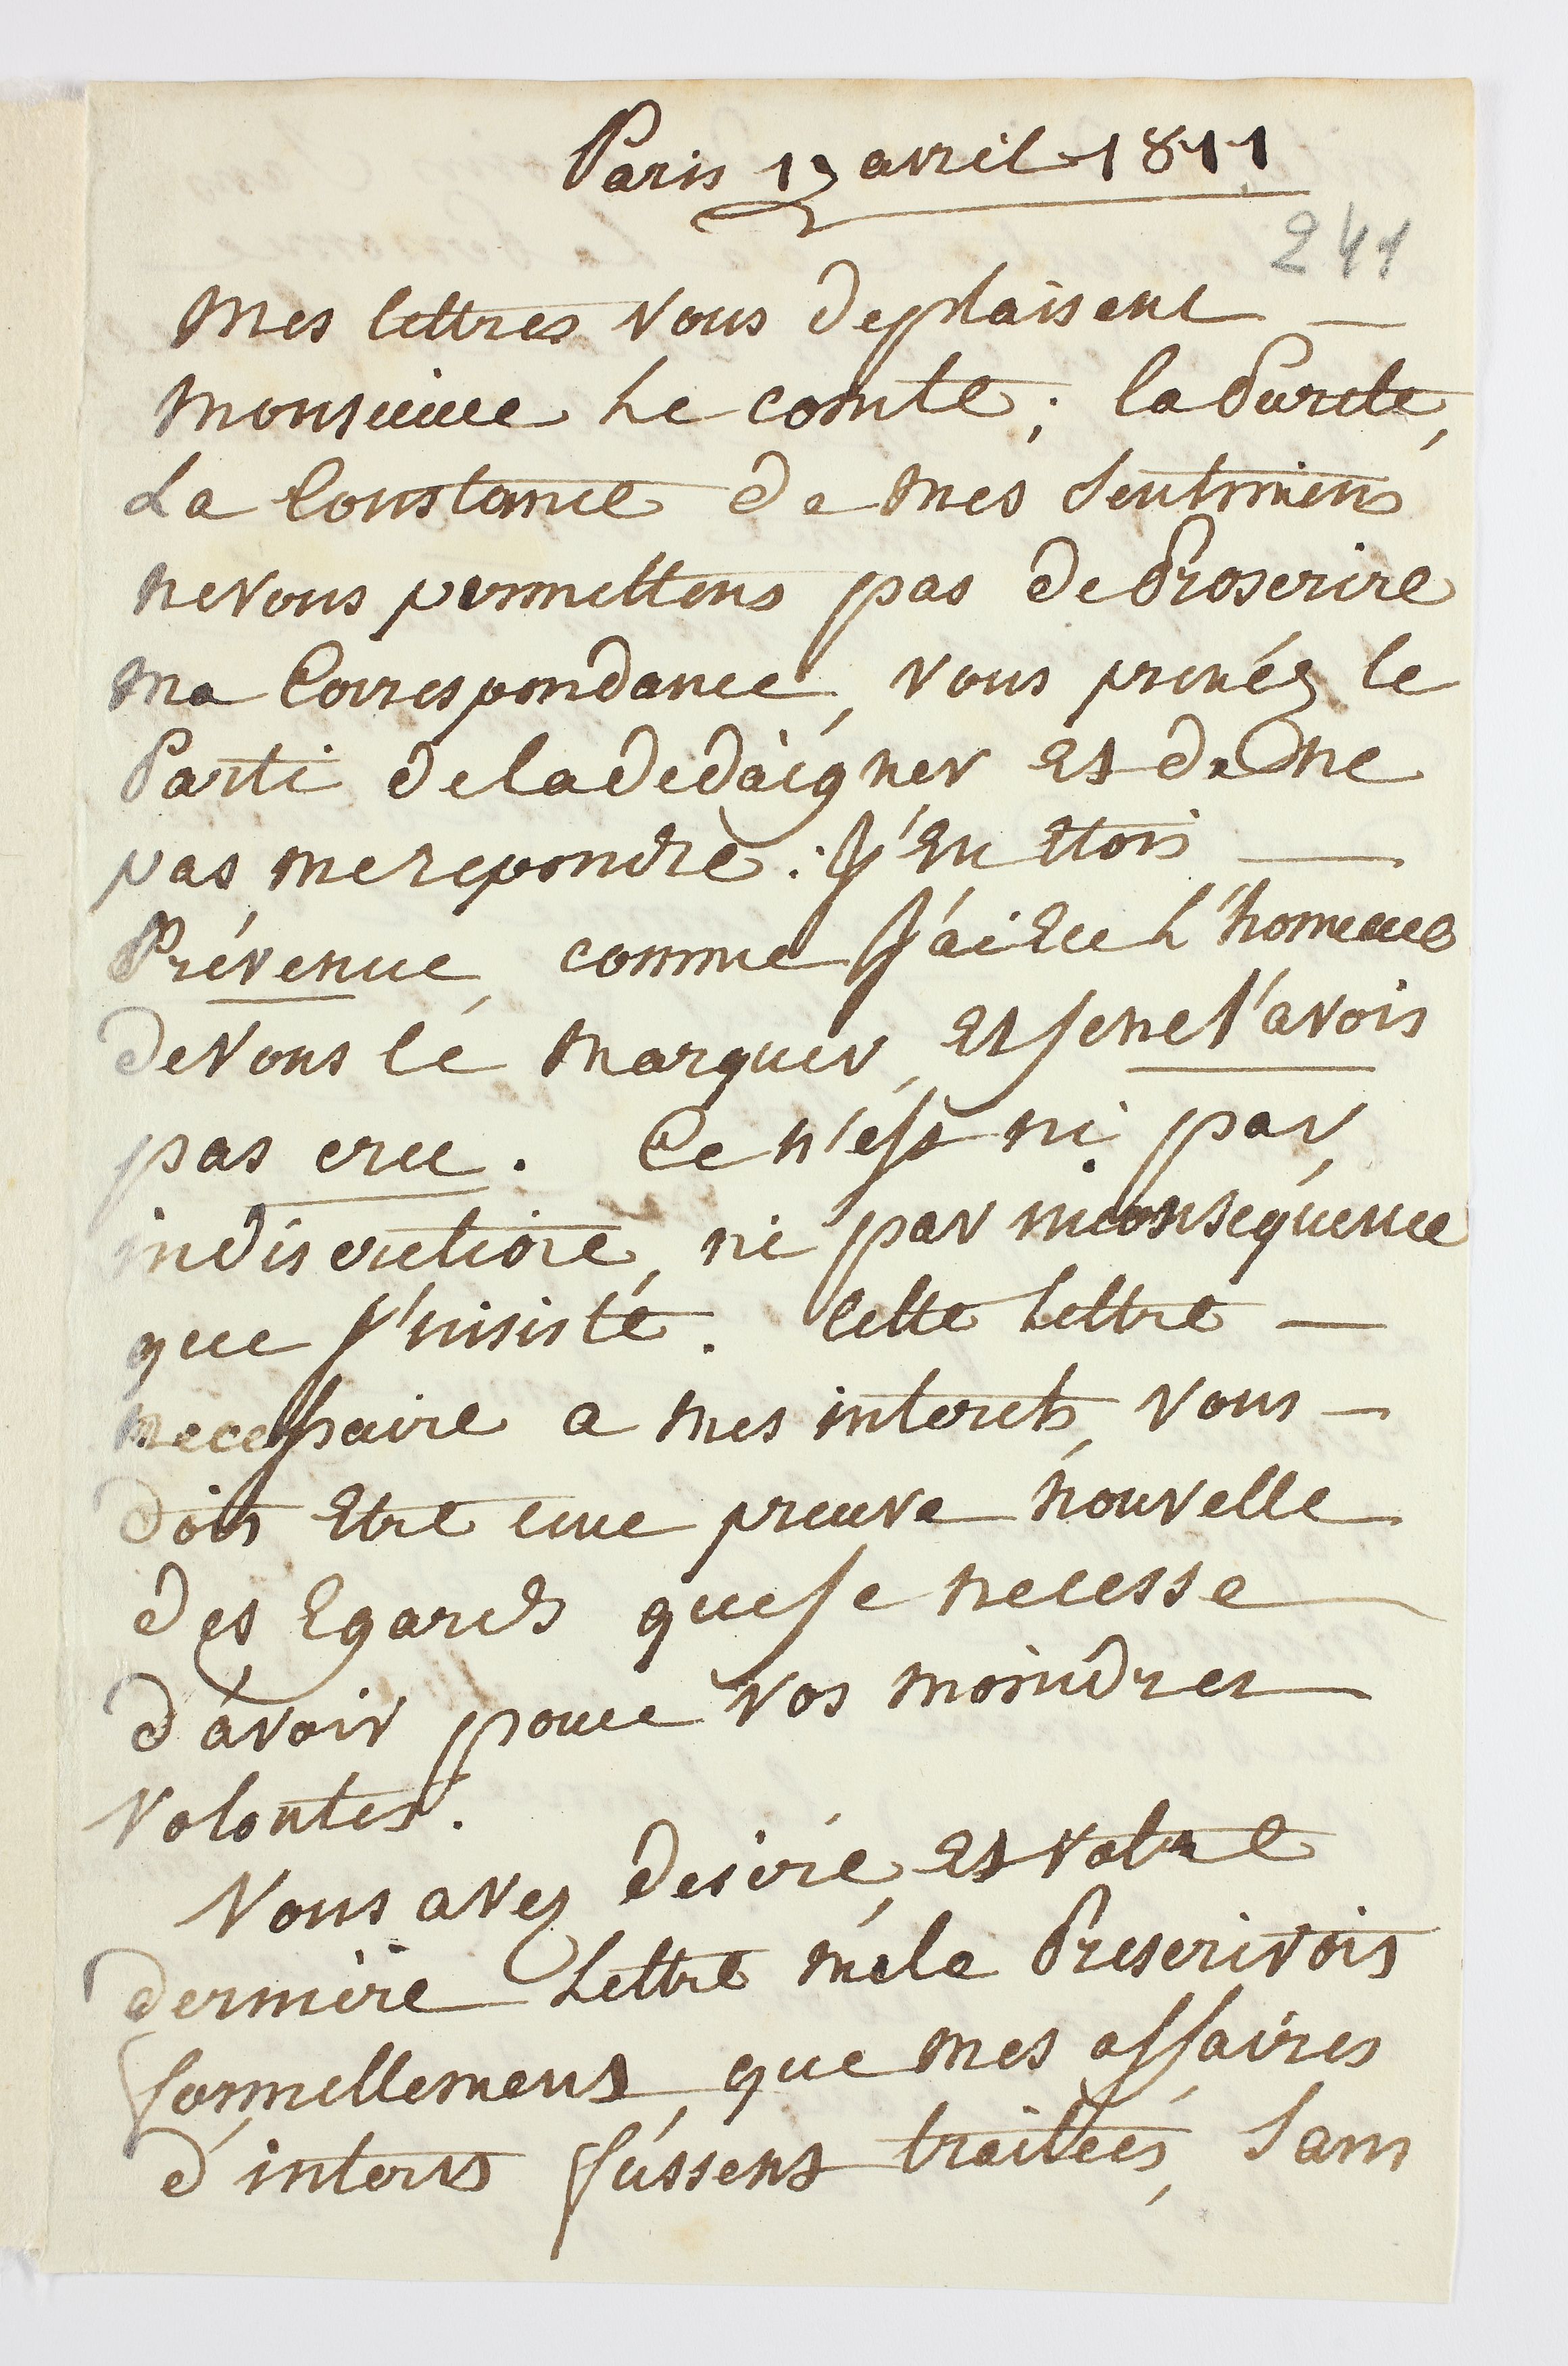 Paris 19 avril 1811
241
Mes lettres vous deplaisent —
monsieur Le comte ; la Pureté,
La Constance de mes sentimens
ne vous permettens pas de Proscrire
ma Correspondance, vous prenéz le
Parti de la dedaigner et de ne
pas me repondre : j'en étois —
Prévenue, comme j'ai eu L'honneur
de vous le marquer, et je ne l'avois
pas cru. Ce n'est ni par
indiscretion, ni par inconséquence
que j'insiste. Cette Lettre —
necessaire a mes interets, vous —
doit Etre une preuve nouvelle
des Egards que je ne cesse
d'avoir pour vos moindres
volontés.
Vous avez desiré, et votre
derniere Lettre me le Prescrivois
formellement, que mes affaires
d'interet fussent traitées, sans